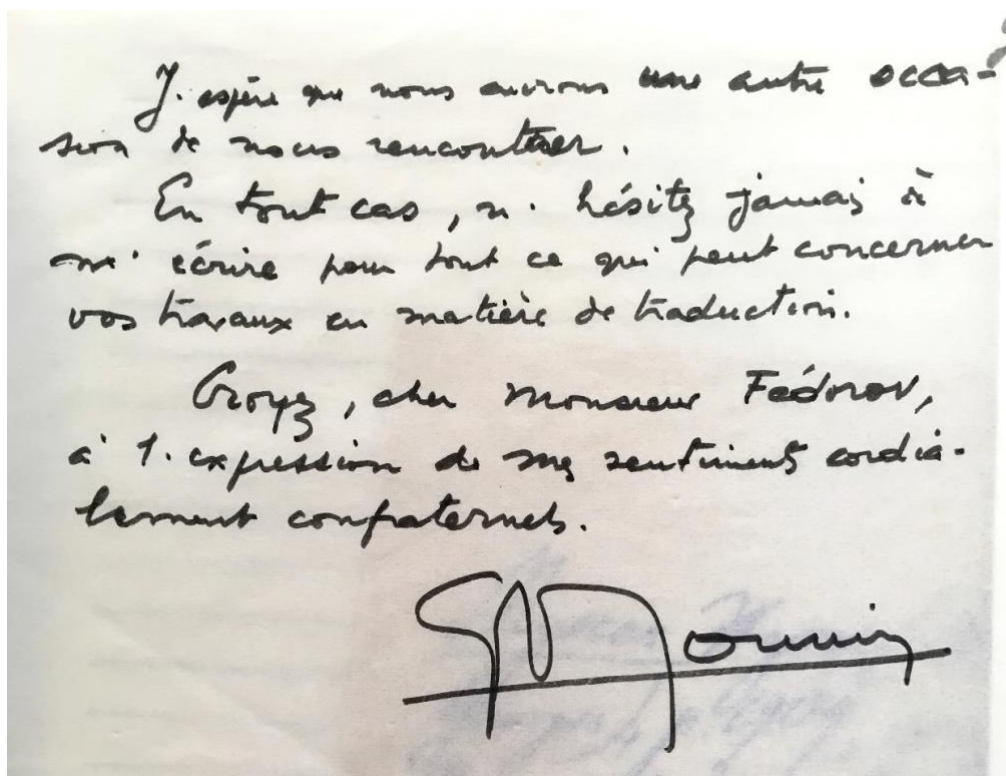 J'espère que nous aurons une autre occa-
sion de nous rencontrer.
En tout cas, n'hésitez jamais à
m'écrire pour tout ce qui peut concerner
vos travaux en matière de traduction.
Croyez, cher Monsieur Fédorov,
à l'expression de mes sentiments cordia-
lement confraternels.
GMounin